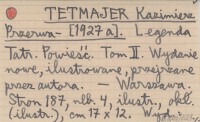 TETMAJER Kazimierz
Przerwa- [1927a]. Legenda
Tatr. Powieść. Tom II. Wydanie
nowe, ilustrowane, przejrzane
przez autora. — Warszawa.
Stron 187, nlb. 4, ilustr., okł.
(ilustr.), cm 17 x 12.